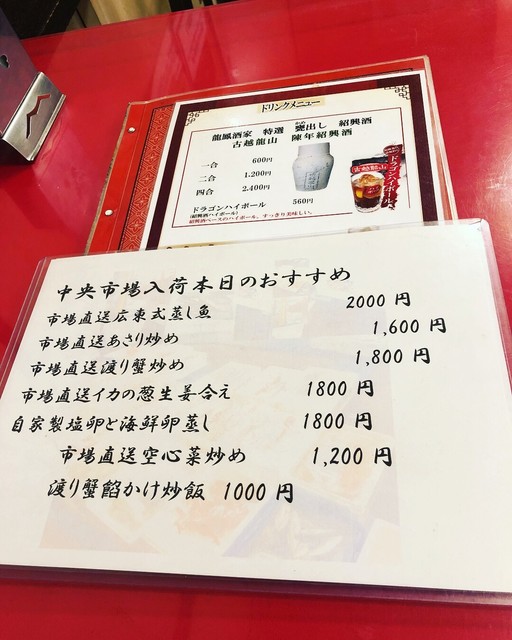 ドリンクメニュー
龍鳳酒家 特選 甕出し 紹興酒
古越龍山 陳年紹興酒
一合 600円
二合 1,200円
四合 2,400円
ドラゴンハイボール 560円
(紹興酒ハイボール)
紹興酒ベースのハイボール。すっきり美味しい。
古越龍山
ドラゴンハイボール
中央市場入荷本日のおすすめ
市場直送広東式蒸し魚 2000 円
市場直送あさり炒め 1,600 円
市場直送渡り蟹炒め 1,800 円
市場直送イカの葱生姜合え 1800 円
自家製塩卵と海鮮卵蒸し 1800 円
市場直送空心菜炒め 1,200 円
渡り蟹餡かけ炒飯 1000 円